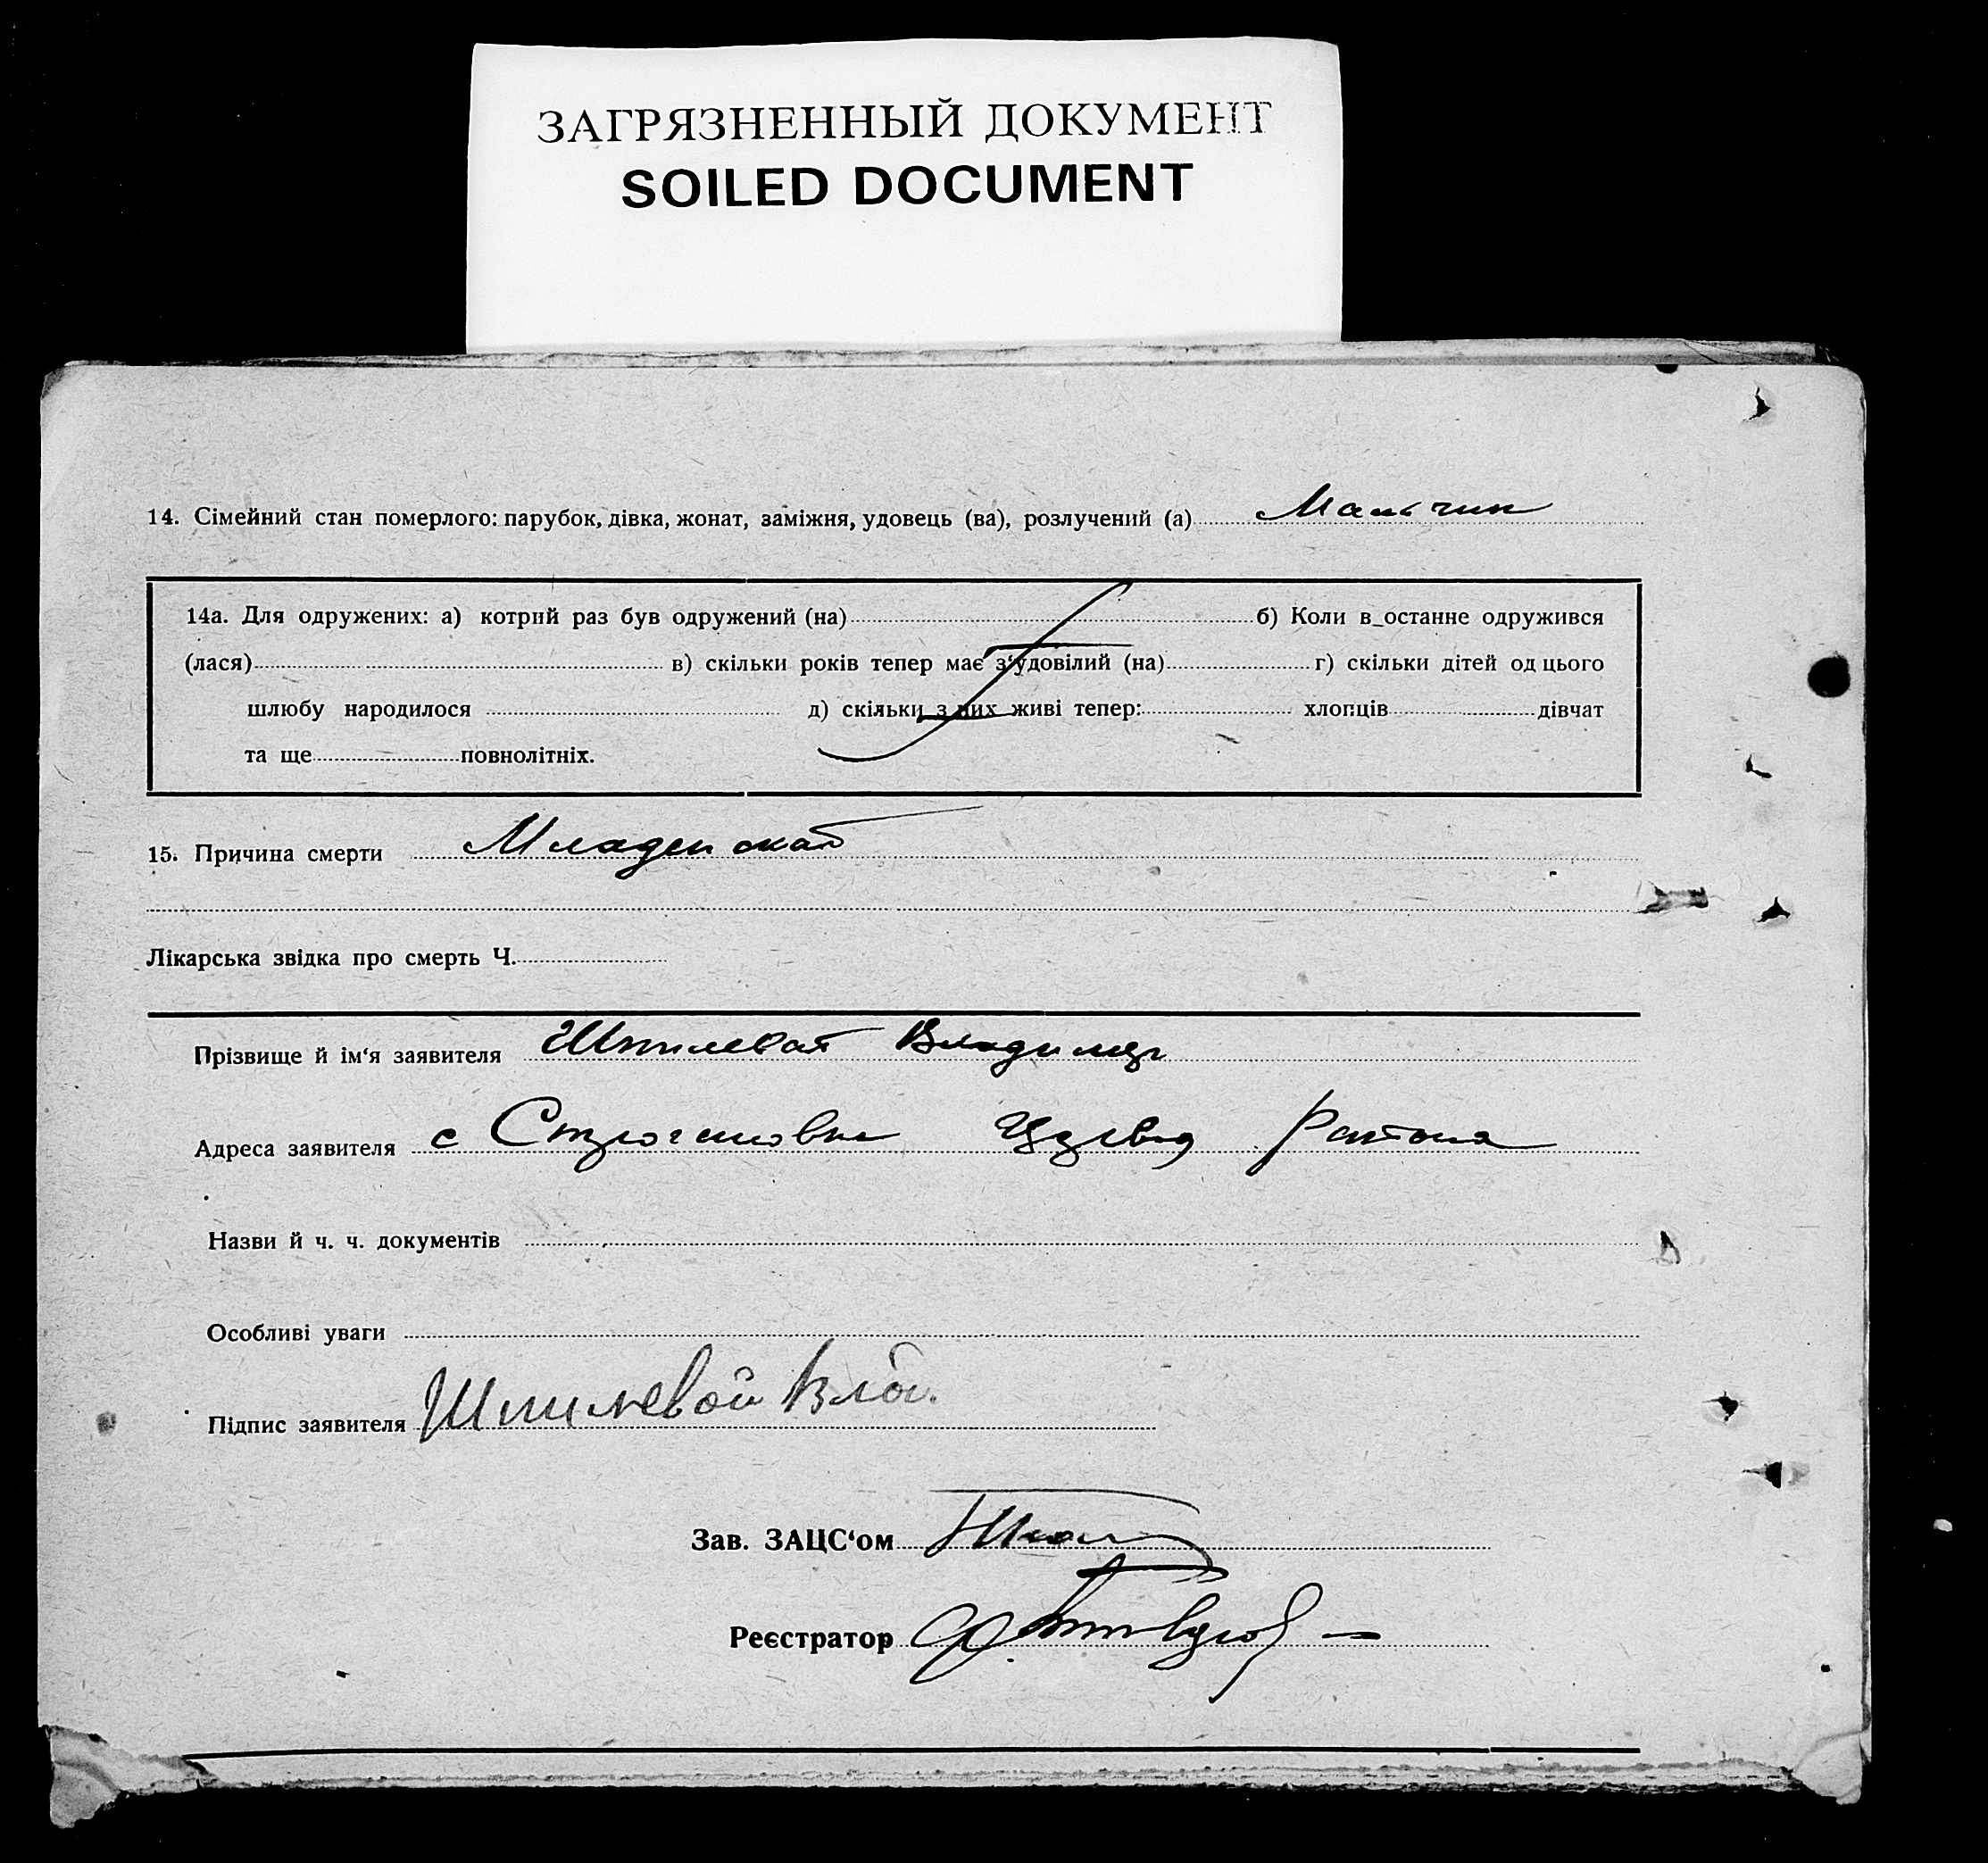 ЗАГРЯЗНЕННЫЙ ДОКУМЕНТ
SOILED DOCUMENT
14. Сімейний стан померлого: парубок, дівка, жонат, заміжня, удовець (ва), розлучений (а) Мальчик
14а. Для одружених: а) котрий раз був одружений (на) б) Коли в останне одружився
(лася) в) скільки років тепер має з‘удовілий (на) г) скільки дітей од цього
шлюбу народилося д) скільки з них живі тепер: хлопців дівчат
та ще повнолітніх.
15. Причина смерти Младенская
Лікарська звідка про смерть Ч.
Прізвище й ім‘я заявителя Шпилевай Владимир
Адреса заявителя с района
Назви й ч. ч. документів
Особливі уваги
Підпис заявителя Шпилевой Вла.
Зав. ЗАЦС‘ом
Реєстратор